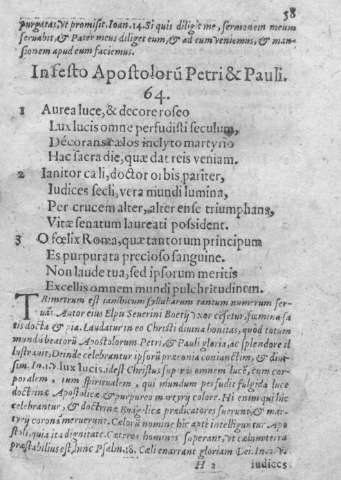 58
purgatas, vt promisit. Ioan. 14. Si quis diligit me, sermonem meum
seruabit & Pater meus diliget eum, & ad eum veniemus, & man-
sionem apud eum faciemus.
In festo Apostolorũ Petri & Pauli.
64.
1 Aurea luce, & decore roseo
Lux lucis omne perfudisti seculum,
Decorans cælos inclyto martyrio
Hac sacra die, quæ dat reis veniam.
2 Ianitor cæli, doctor orbis pariter,
Iudices secli, vera mundi lumina,
Per crucem alter, alter ense triumphans,
Vitæ senatum laureati possident.
3 O fœlix Roma, quæ tantorum principum
Es purpurata precioso sanguine.
Non laude tua, sed ipsorum meritis
Excellis omnem mundi pulchritudinem.
TRimetrum est iambicum syllabarum tantum numerum ser-
uãs. Autor eius Elpis Seuerini Boetij vxor cẽsetur, fœmina sa
tis docta & pia. Laudatur in eo Christi diuina bonitas, quòd totum
mundũ beatorũ Apostolorum Petri, & Pauli gloria, ac splendore il
lustrauit. Deinde celebrantur ipsorũ præconia coniunctim, &
sim. In. 1. v lux lucis. idest Christus supra omnem lucẽ, tum cor-
poralem, tum spiritualem, qui mundum perfudit fulgida luce
doctrinæ Apostolicæ & purpureo martyrij colore. Hi enim qui hîc
celebrantur, & doctrinæ Euãgelicæ prædicatores fuerunt, & mar-
tyrij coronã meruerunt. Cælorũ nomine hîc aptè intelliguntur Apo
stoli, quia ita dignitate cæteros homines superant, vt cælum terra
præstabilius est, iuxtà Psalm. 18. Cæli enarrant gloriam Dei. In. 2. v.
H 2 iudices